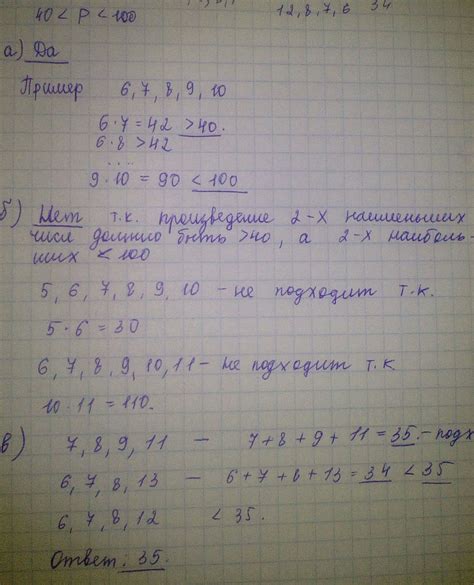 40 < P < 100
12, 8, 7, 6 34
а) Да
Пример 6, 7, 8, 9, 10
6·7 = 42 >40.
6·8 >42
....
9·10 = 90 < 100
б) Нет т.к. произведение 2-х наименьших
чисел должно быть >40, а 2-х наиболь-
ших < 100
5, 6, 7, 8, 9, 10 – не подходит т.к.
5·6 = 30
6, 7, 8, 9, 10, 11 – не подходит т.к
10·11 = 110.
в) 7, 8, 9, 11 — 7+8+9+11 = 35. – подх
6, 7, 8, 13 — 6+7+8+13 = 34 < 35
6, 7, 8, 12 < 35.
Ответ: 35.